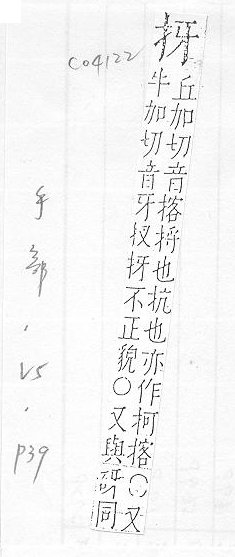 C04122
抲
丘加切音揢捋也抗也亦作柯揢○又
牛加切音牙杈抲不正貌○又與研同
手部,V5,P39